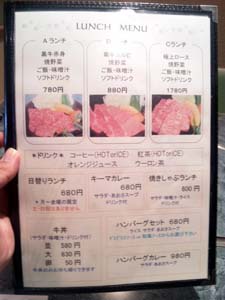 LUNCH MENU
Aランチ
黒牛赤身
焼野菜
ご飯・味噌汁
ソフトドリンク
780円
焼野菜
ご飯・味噌汁
ソフトドリンク
880円
Cランチ
極上ロース
焼野菜
ご飯・味噌汁
ソフトドリンク
1580円
＊ドリンク＊ コーヒー(HOT or ICE) 紅茶(HOT or ICE)
オレンジジュース ウーロン茶
日替りランチ
680円
キーマカレー
680円
サラダ・
ドリンク付
焼きしゃぶランチ
800円
サラダ・味噌汁・ライス
ドリンク付
牛丼
(サラダ・味噌汁・ドリンク付)
並 580円
大 630円
卵 50円
ハンバーグセット 680円
ハンバーグカレー 980円